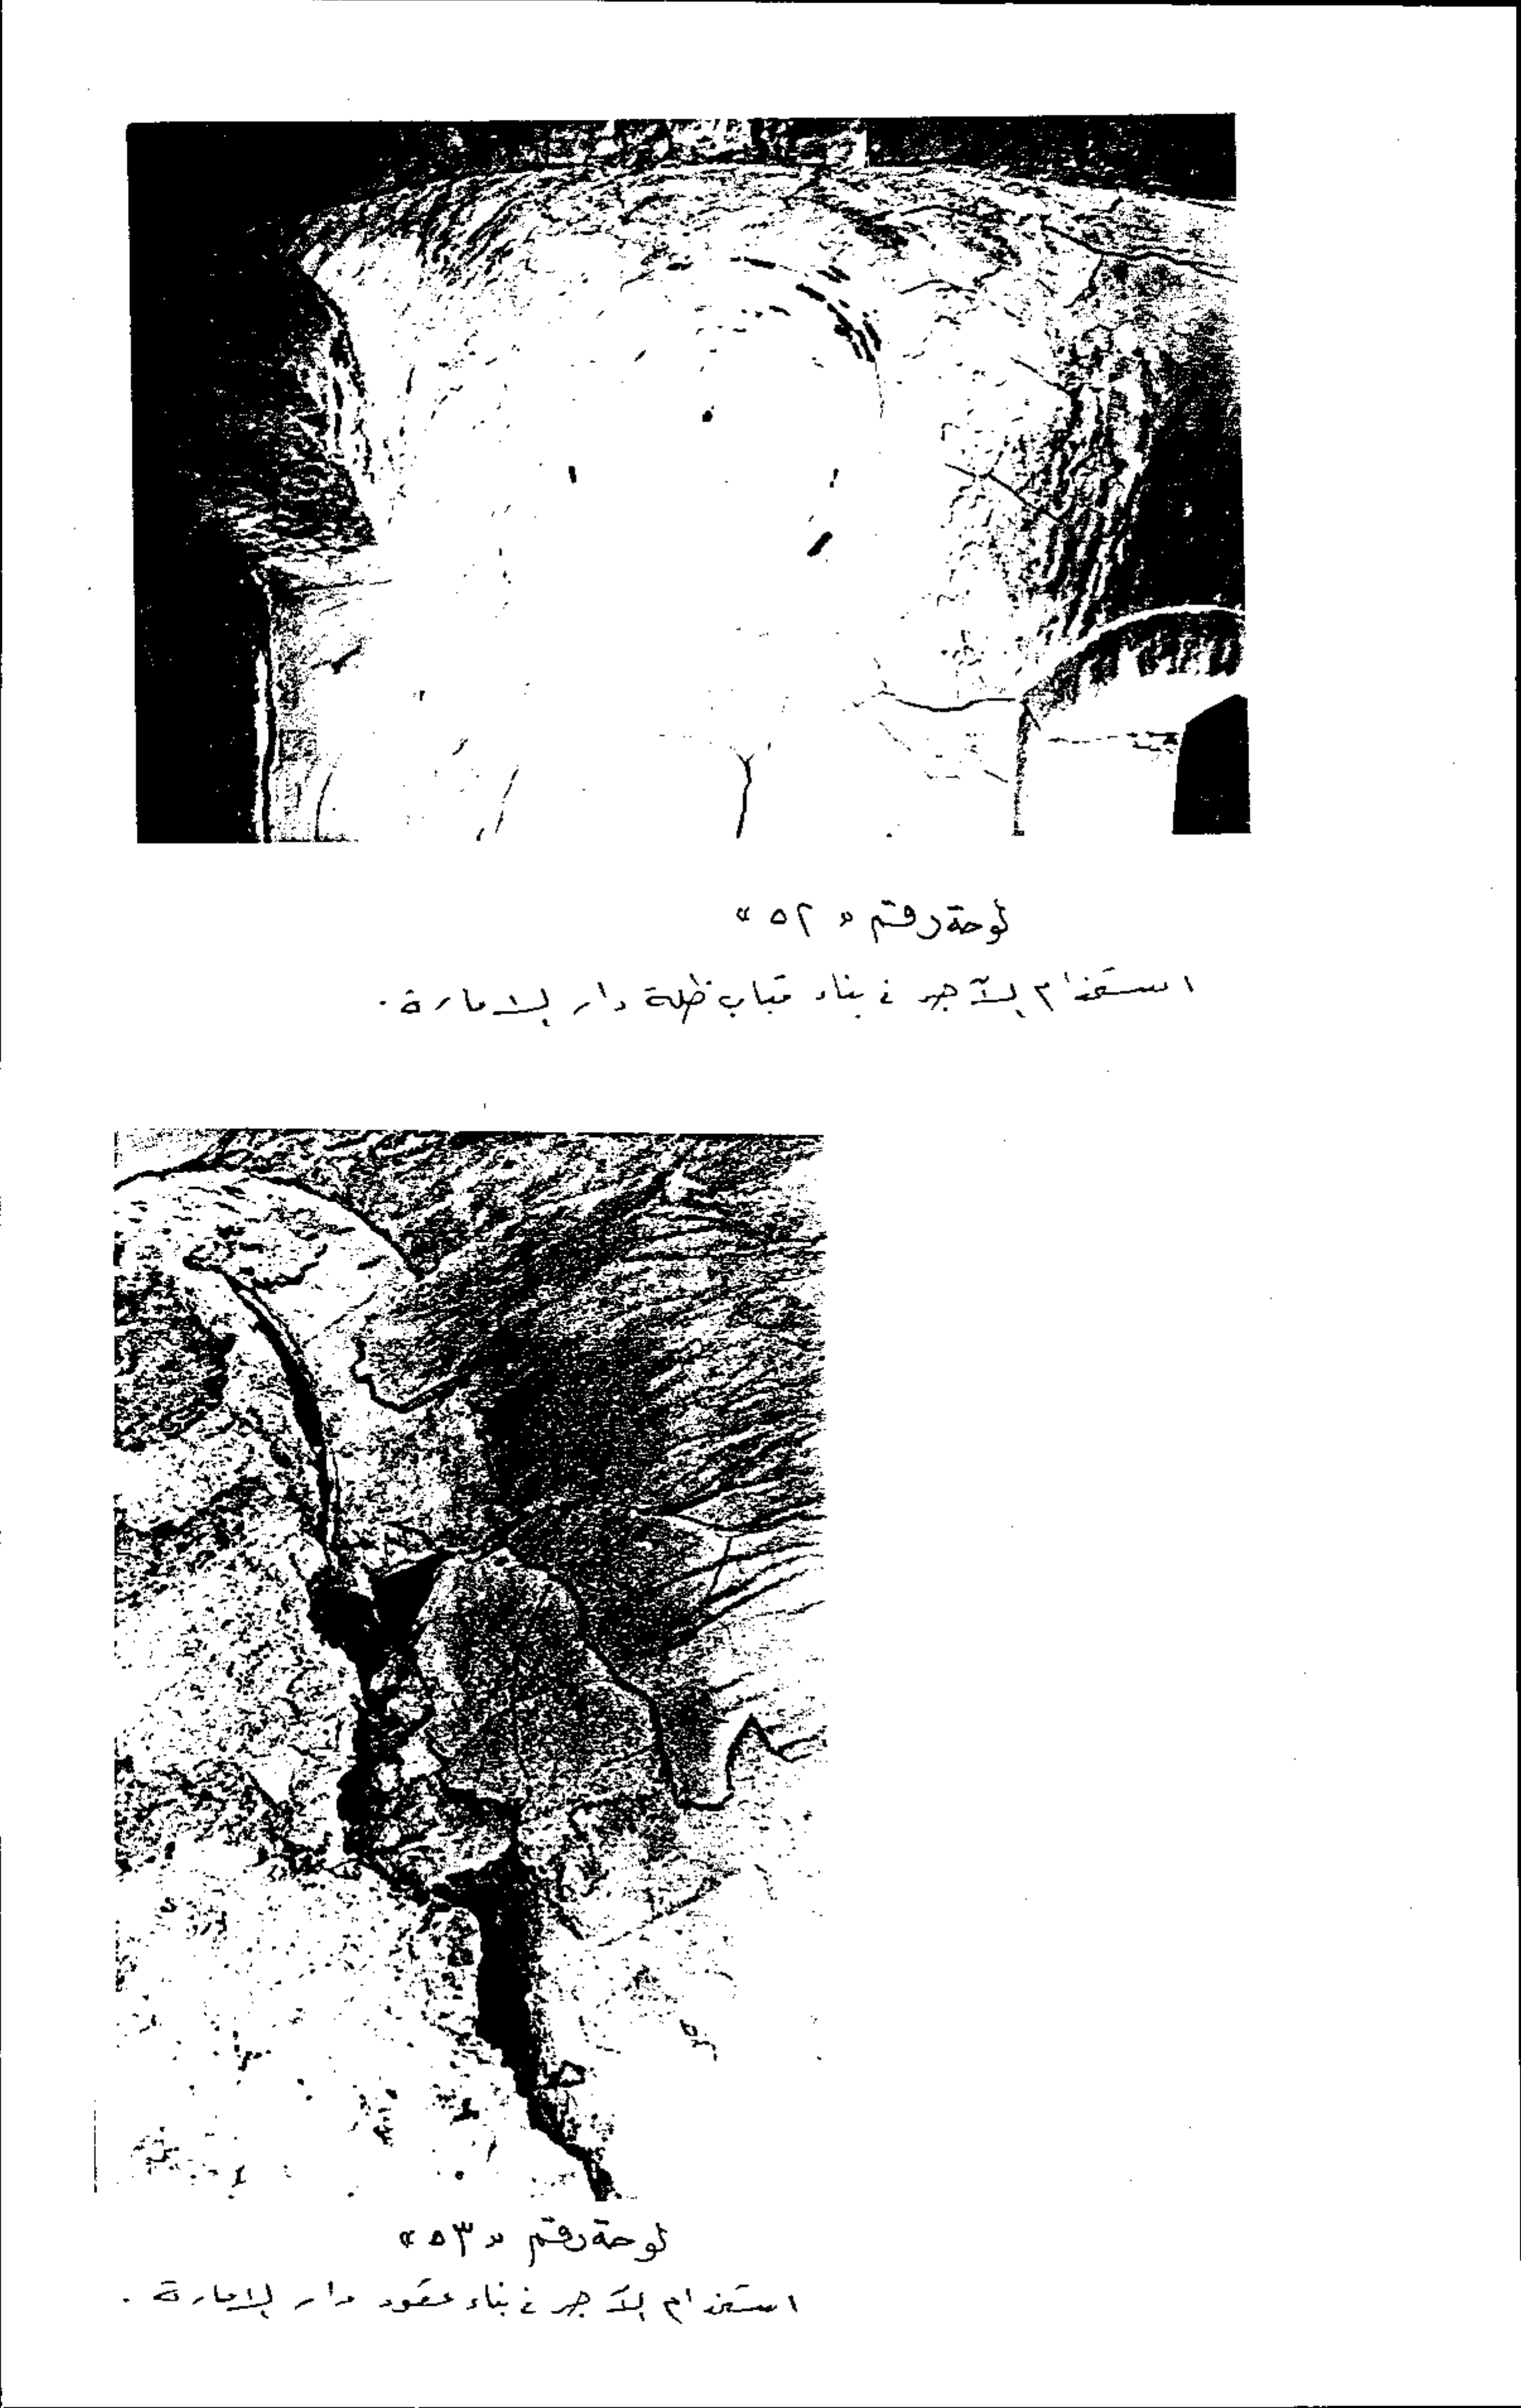 لوحة رقم « ٥٢ »
استخدام الآجر في بناء قباب ظلة دار الامارة .
لوحة رقم « ٥٣ »
استخدام الآجر في بناء عقود دار الامارة .